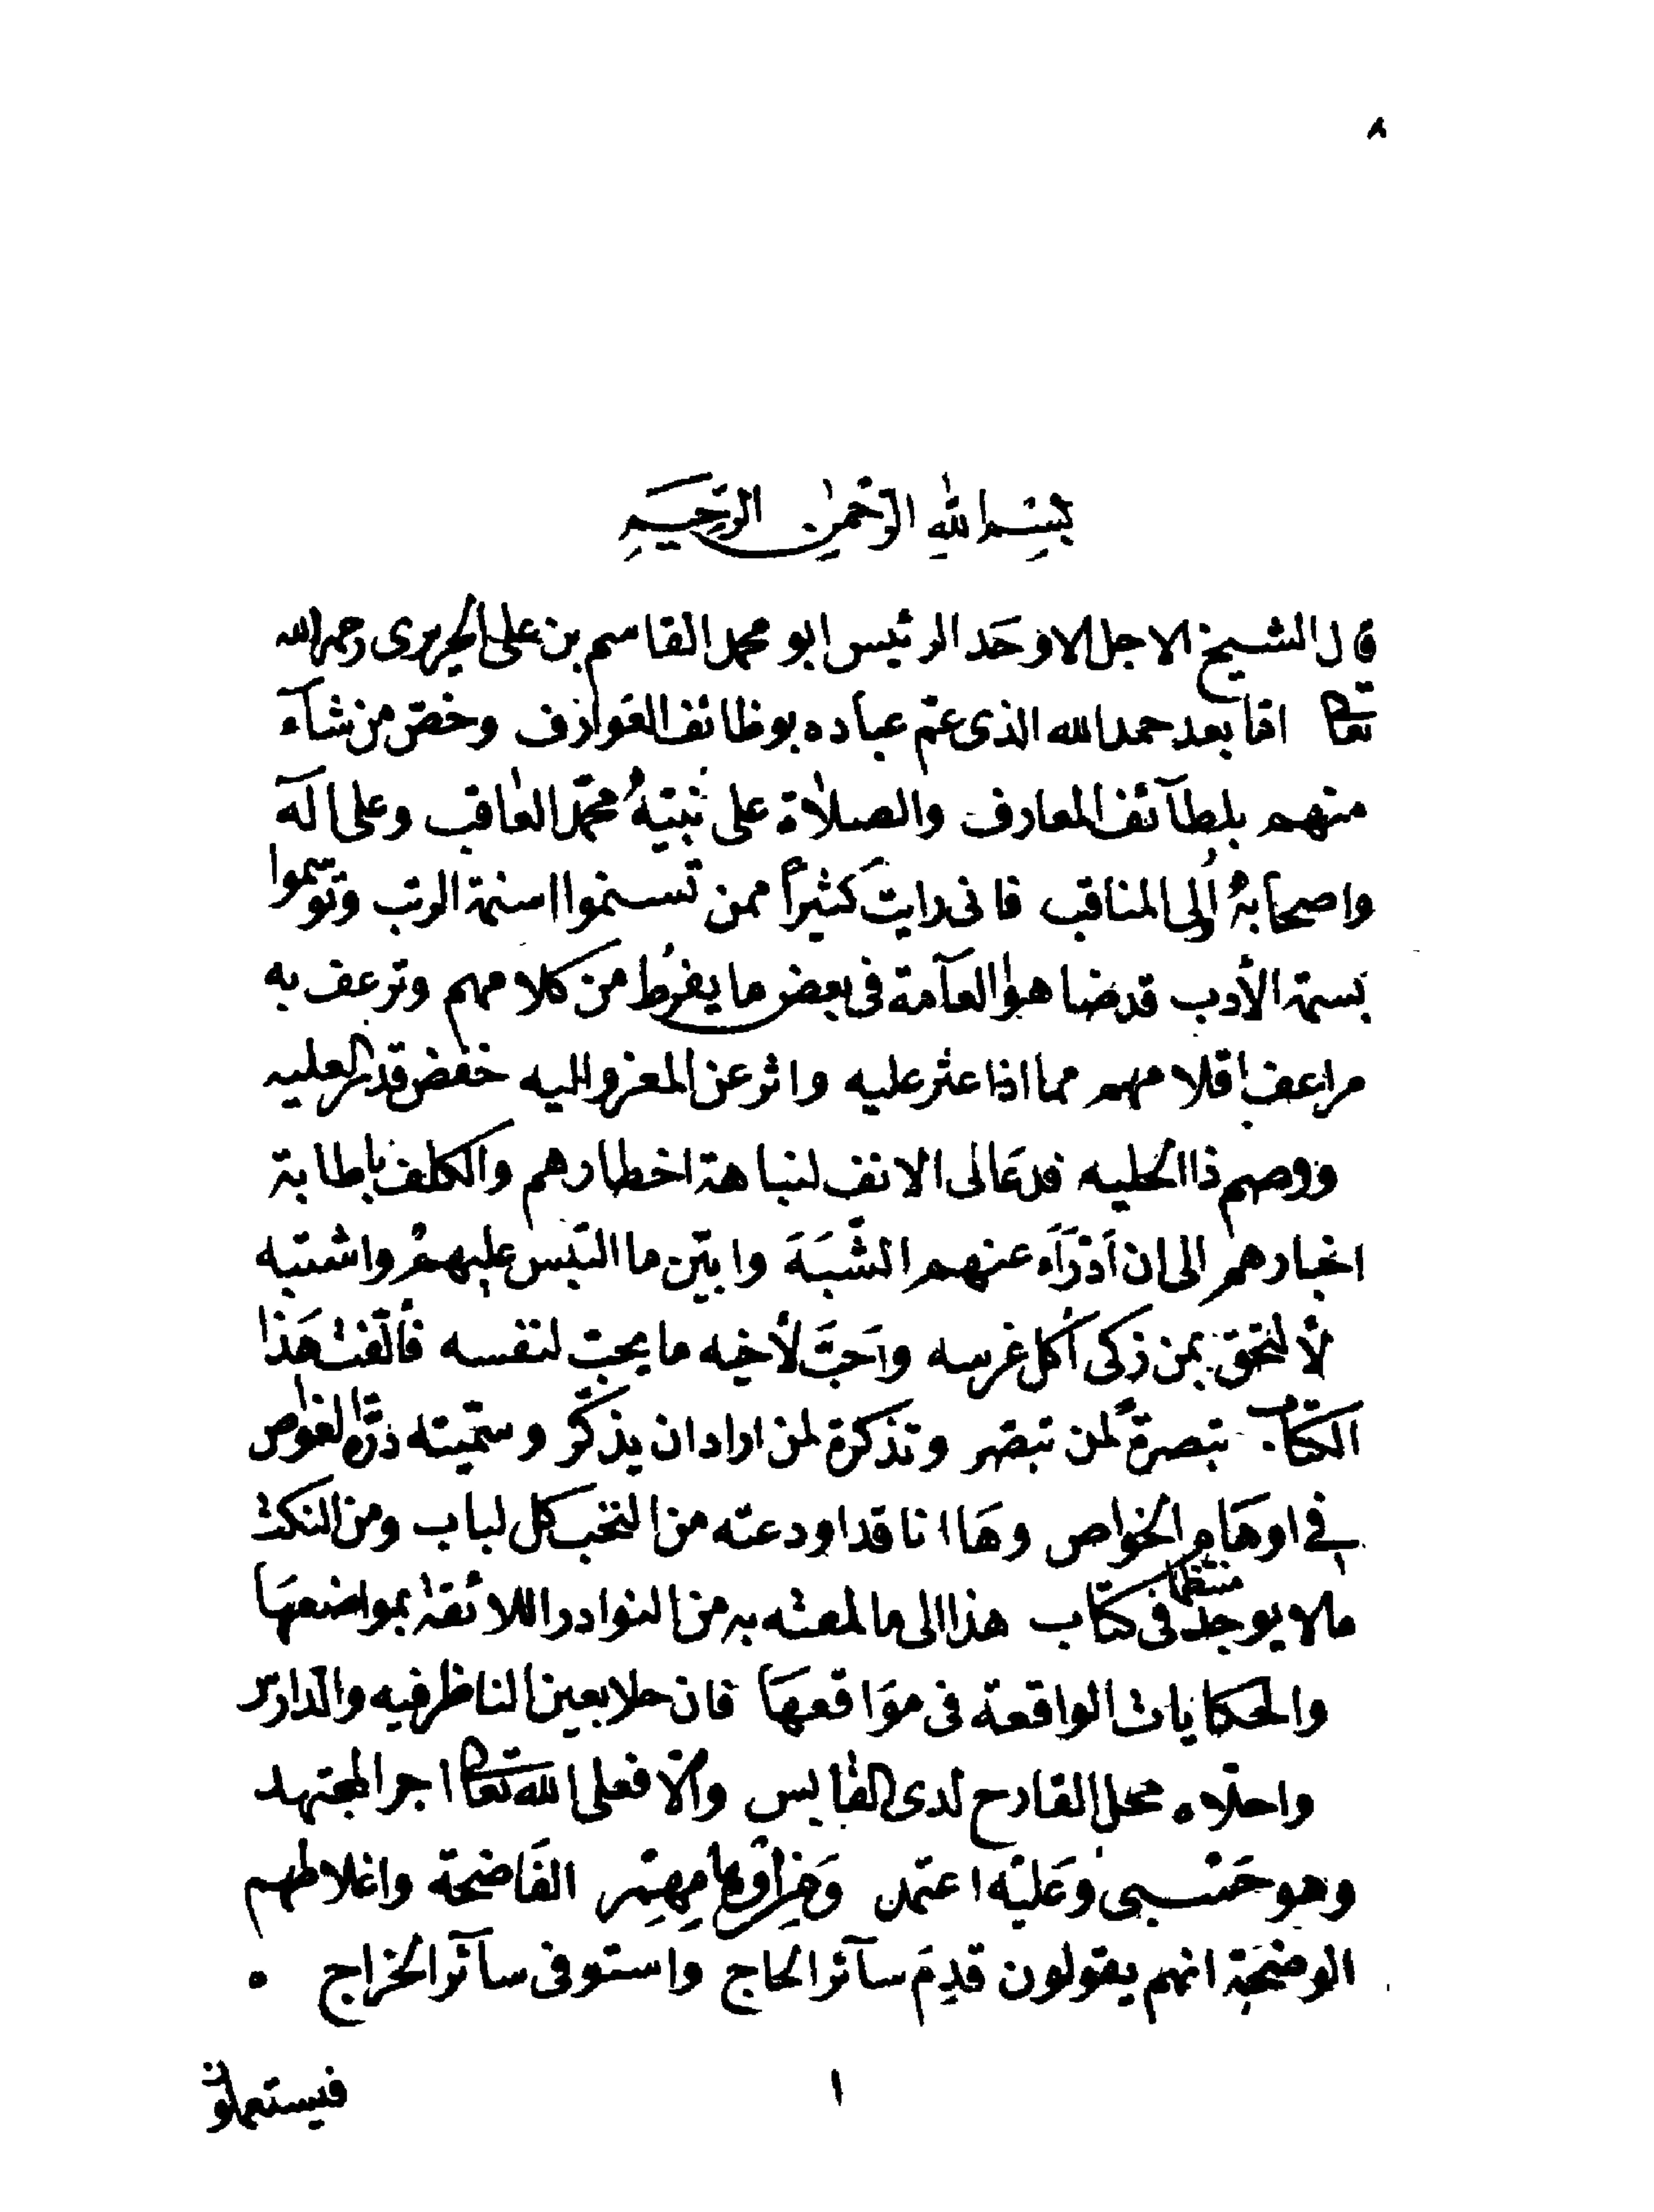 ٨
بسم الله الرحمن الرحيم
قال الشيخ الاجل الاوحد الرئيس ابو محمد القاسم بن على الحريرى رحمه الله
تعالى اما بعد حمد الله الذى عم عباده بوظائف العوارف وخص من شآء
منهم بلطآئف المعارف والصلاة على نبيه محمد العاقب وعلى اله
واصحابه أولى المناقب فانى رايت كثيراً ممن تسنموا اسنمة الرتب وتوسموا
بسمة الأدب قد ضاهوا العآمة فى بعض ما يفرط من كلامهم وترعف به
مراعف اقلامهم مما اذا عثر عليه واثر عن المعزو اليه خفض قدر العليه
ووصم ذا الحليه فدعانى الانف لنباهة اخطارهم والكلف باطابة
اخبارهم الى ان اَدْرَأ عنهم الشُّبَهَ وابين ما التبس عليهم واشتبه
لألتحق بمن زكى أكل غرسه واَحَبَّ لأخيه ما يحب لنفسه فألّفت هَذا
الكتاب تبصرةً لمن تبصّر وتذكرة لمن اراد ان يذكّر وسمّيته درّة الغواص
فى اوهام الخواص وهَا انا قد اودعته من النخب كل لباب ومن النكت
مالا يوجد منتظما فى كتاب هذا الى ما لمعته به من النوادر اللائقة بمواضعهَا
والحكايات الواقعة فى موَاقعهَا فان حلا بعين الناظر فيه والدارس
واحلاه محل القادح لدى القابس والّا فعلى الله تعالى اجر المجتهد
وهو حَسْبى وَعَليه اعتمد وَمِن اوهامِهِم الفَاضحة واغلاطهم
الوضحة انهم يقولون قدِمَ سآئر الحاج واستوفى سآئر الخراج ٥
١
فيستعملون